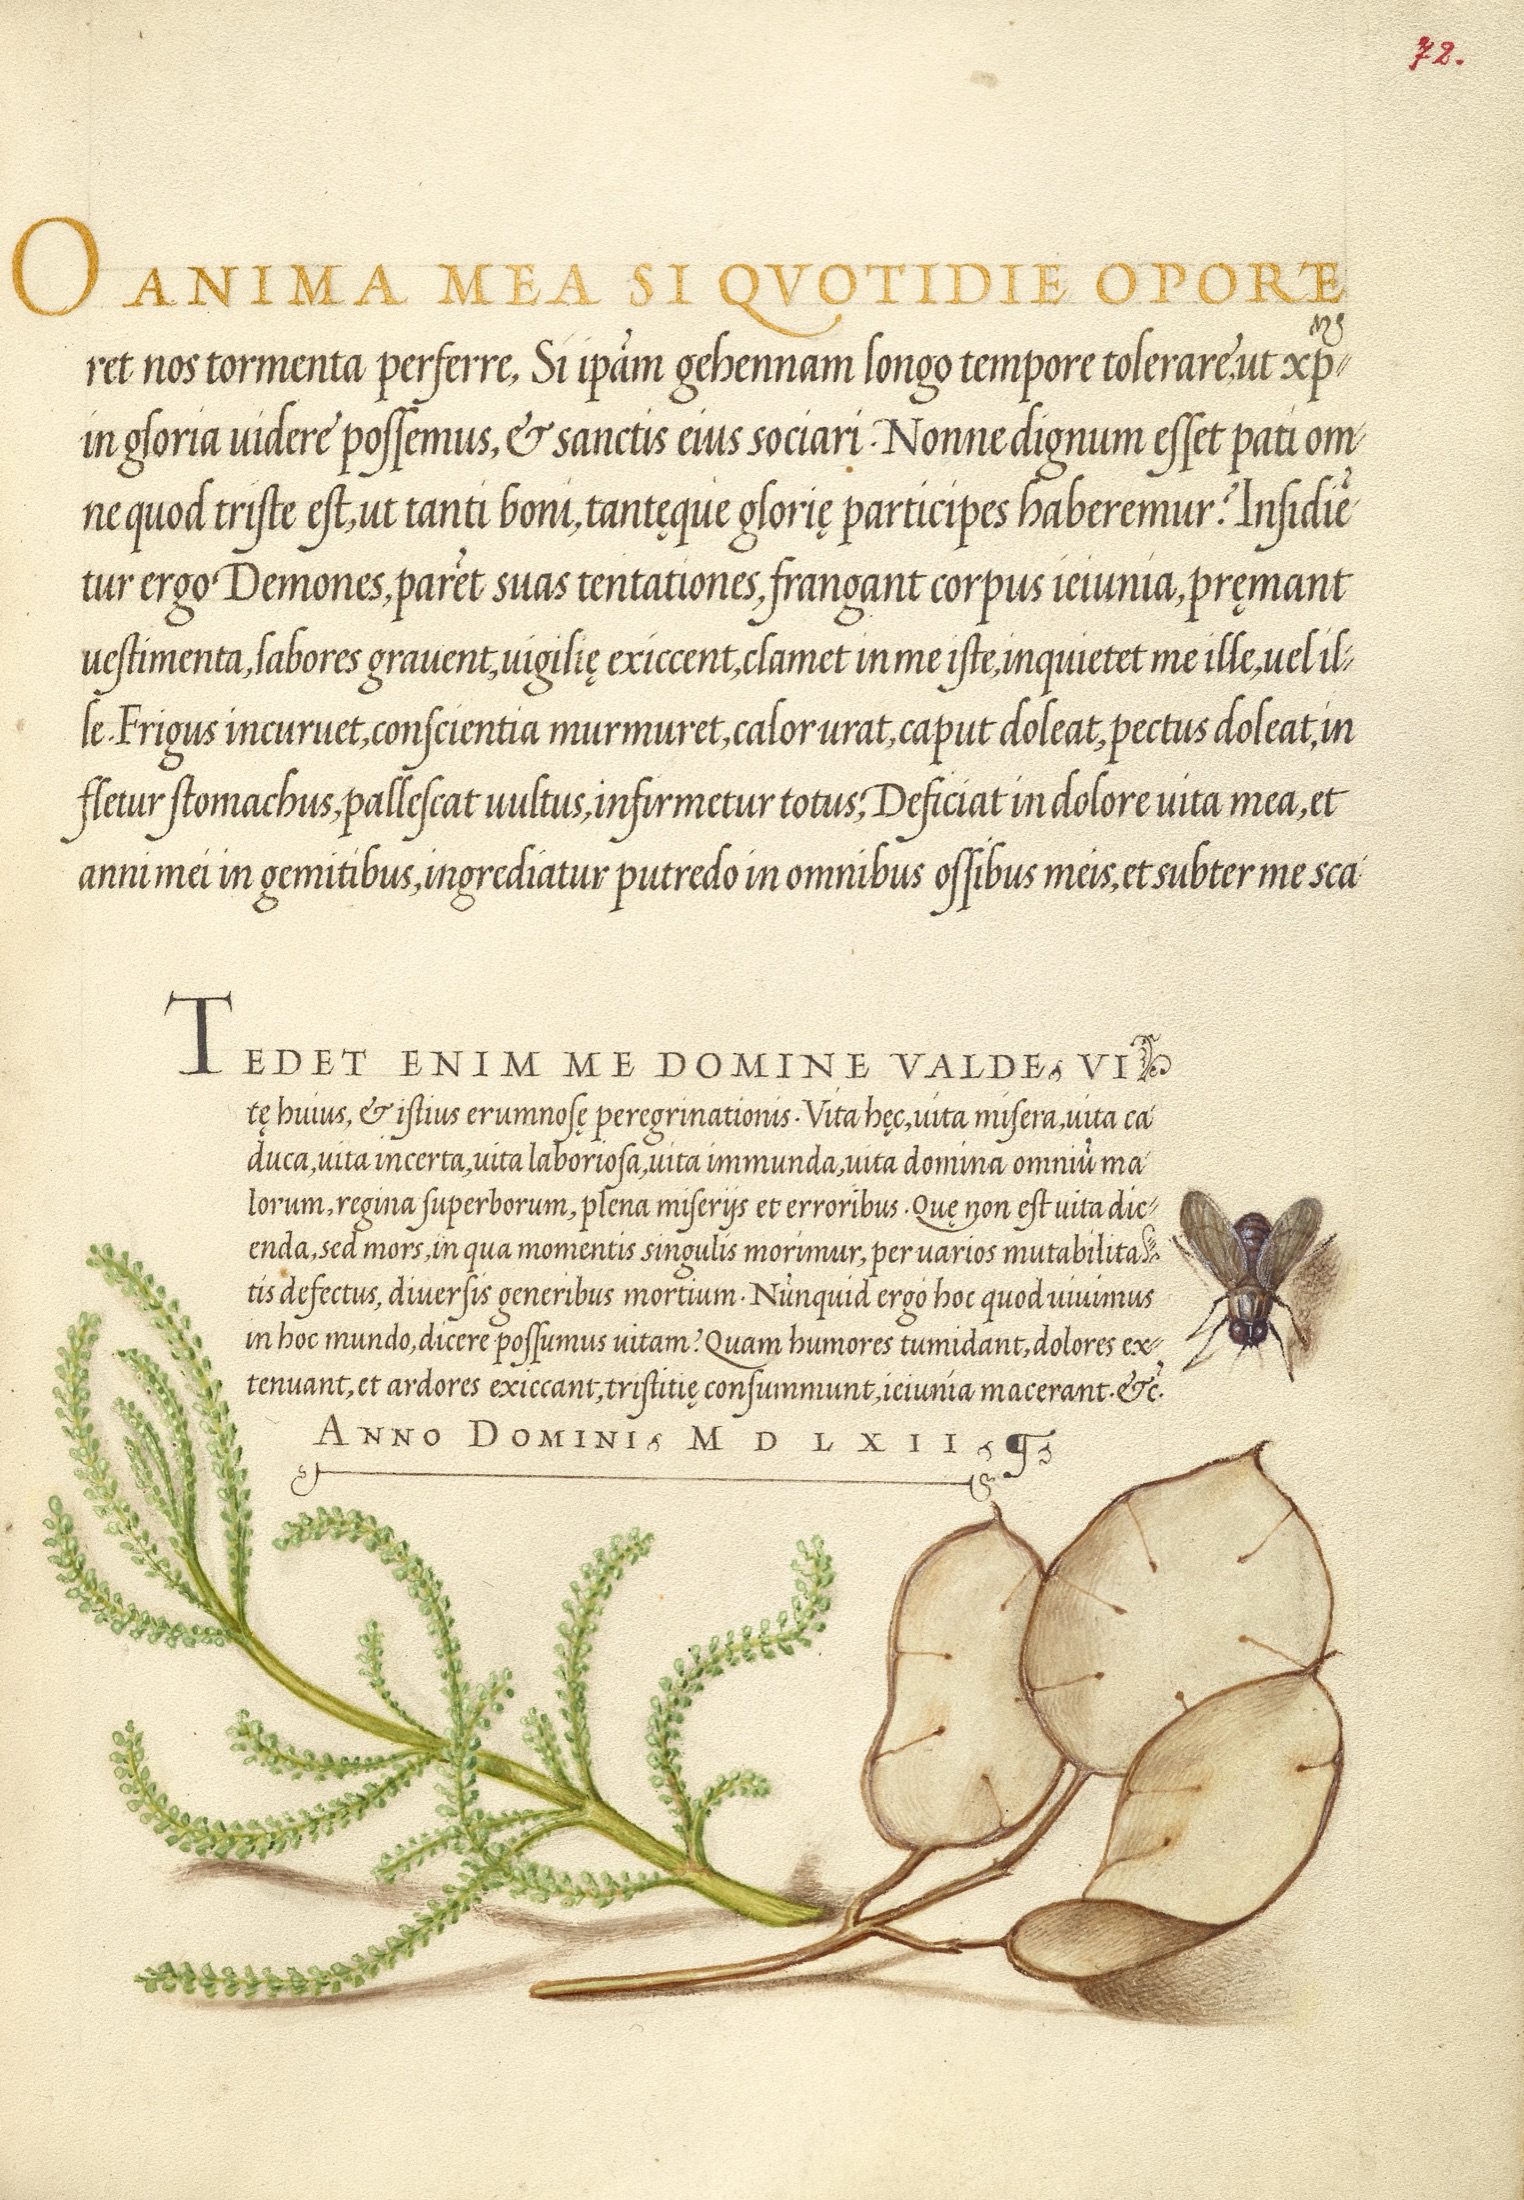 72.
O ANIMA MEA SI QVOTIDIE OPORTE
ret nos tormenta perferre, Si ipãm gehennam longo tempore tolerare, ut xp̃m
in gloria uidere possemus, & sanctis eius sociari. Nonne dignum esset pati om-
ne quod triste est, ut tanti boni, tantęque glorię participes haberemur? Insidiẽ
tur ergo Demones, parẽt suas tentationes, frangant corpus ieiunia, pręmant
uestimenta, labores grauent, uigilię exiccent, clamet in me iste, inquietet me ille, uel il-
le. Frigus incuruet, conscientia murmuret, calor urat, caput doleat, pectus doleat, in
fletur stomachus, pallescat uultus, infirmetur totus; Deficiat in dolore uita mea, et
anni mei in gemitibus, ingrediatur putredo in omnibus ossibus meis, et subter me sca
TEDET ENIM ME DOMINE VALDE, VI
tę huius, & istius erumnosę peregrinationis. Vita hęc, uita misera, uita ca
duca, uita incerta, uita laboriosa, uita immunda, uita domina omniũ ma
lorum, regina superborum, plena miserijs et erroribus. Quę non est uita dic-
enda, sed mors, in qua momentis singulis morimur, per uarios mutabilita
tis defectus, diuersis generibus mortium. Nũnquid ergo hoc quod uiuimus
in hoc mundo, dicere possumus uitam? Quam humores tumidant, dolores ex-
tenuant, et ardores exiccant, tristitię consummunt, ieiunia macerant. &c̃.
ANNO DOMINI, M D L X I I,